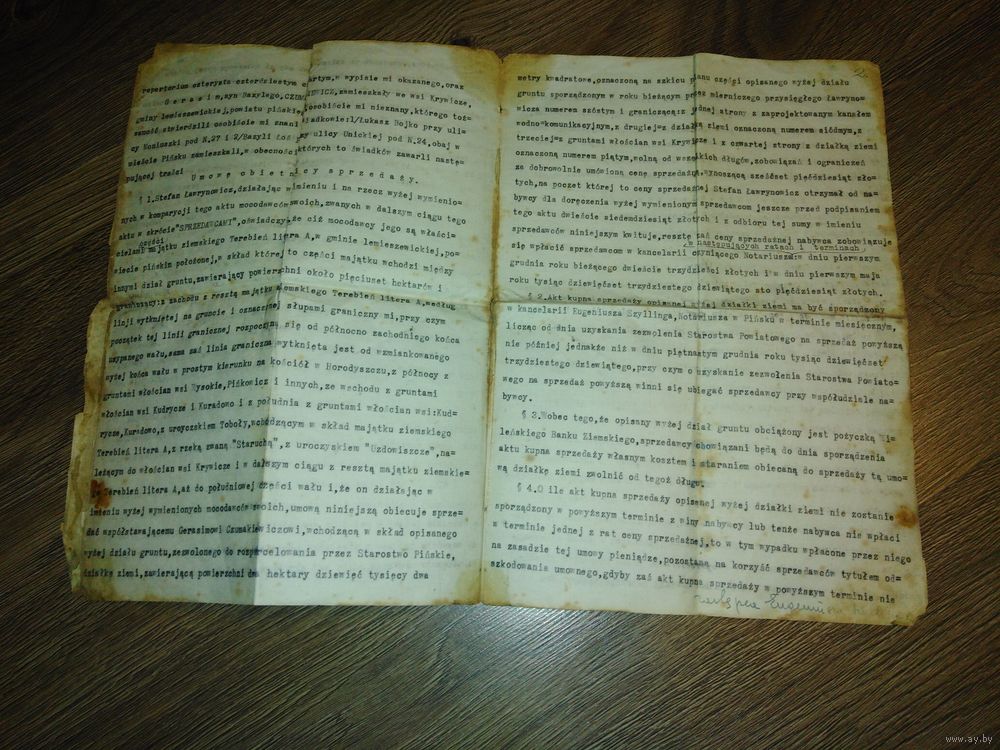 repertorjum czterysta czterdziestym czwartym,w wypisie mi okazanego,oraz
Gerasim,syn Bazylego,CZUMAKIEWICZ,zamieszkały we wsi Krywicze,
gminy lemieszewickiej,powiatu pińskiego,osobiście mi nieznany,którego toż=
samość stwierdzili osobiście mi znani świadkowie:1/Łukasz Bojko przy uli=
cy Koniuszki pod N.27 i 2/Bazyli przy ulicy Unickiej pod N.24,obaj w
mieście Pińsku zamieszkali,w obecności których to świadków zawarli nastę=
pującej treści
Umowę obietnicy sprzedaży.
§ 1.Stefan Ławrynowicz,działając w imieniu i na rzecz wyżej wymienio=
nych w komparycji tego aktu mocodawców swoich,zwanych w dalszym ciągu tego
aktu w skrócie"SPRZEDAWCAMI",oświadczył,że ciż mocodawcy jego są właści=
części
cielami majątku ziemskiego Terebień litera A,w gminie lemieszewickiej,po=
wiecie pińskim położonej,w skład której to części majątku wchodzi między
innymi dział gruntu,zawierający powierzchni około pięciuset hektarów i
graniczący:z zachodu z resztą majątku ziemskiego Terebień litera A,według
linji wytkniętej na gruncie i oznaczonej słupami graniczny mi,przy czym
początek tej linji granicznej rozpoczyna się od północno zachodniego końca
usypanego wału,sama zaś linja graniczna wytknięta jest od wzmiankowanego
wyżej końca wału w prostym kierunku na kościół w Horodyszczu,z północy z
gruntami włościan wsi Wysokie,Pińkowicz i innych,ze wschodu z gruntami
włościan wsi Kudrycze i Kuradowo i z południa z gruntami włościan wsi:Kud=
rycze,Kuradowo,z uroczyskiem Toboły,wchodzącym w skład majątku ziemskiego
Terebień litera A,z rzeką zwaną "Starucha",z uroczyskiem "Uzdowiszcze",na=
leżącym do włościan wsi Krywicze i w dalszym ciągu z resztą majątku ziemskie=
go Terebień litera A,aż do południowej części wału i,że on działając w
imieniu wyżej wymienionych mocodawców swoich,umową niniejszą obiecuje sprze=
dać współstawającemu Gerasimowi Czumakiewiczowi,wchodzącą w skład opisanego
wyżej działu gruntu,zezwolonego do rozparcelowania przez Starostwo Pińskie,
działkę ziemi,zawierającą powierzchni dwa hektary dziewięć tysięcy dwa
metry kwadratowe,oznaczoną na szkicu planu części opisanego wyżej działu
gruntu sporządzonym w roku bieżącym przez mierniczego przysięgłego Ławryno=
wicza numerem szóstym i graniczącą:z jednej strony z zaprojektowanym kanałem
wodno=komunikacyjnym,z drugiej=z działką ziemi oznaczoną numerem siódmym,z
trzeciej=z gruntami włościan wsi Krywicze i z czwartej strony z działką ziemi
oznaczoną numerem piątym,wolną od wszelkich długów,zobowiązań i ograniczeń
za dobrowolnie umówioną cenę sprzedażną,wynoszącą sześćset pięćdziesiąt zło=
tych,na poczet której to ceny sprzedażnej Stefan Ławrynowicz otrzymał od na=
bywcy dla doręczenia wyżej wymienionym sprzedawcom jeszcze przed podpisaniem
tego aktu dwieście siedemdziesiąt złotych i z odbioru tej sumy w imieniu
sprzedawców niniejszym kwituje,resztę zaś ceny sprzedażnej nabywca zobowiązuje
/w następujących ratach i terminach,
się wpłacić sprzedawcom w kancelarii czyniącego Notariusza:w dniu pierwszym
grudnia roku bieżącego dwieście trzydzieści złotych i w dniu pierwszym maja
roku tysiąc dziewięćset trzydziestego dziewiątego sto pięćdziesiąt złotych.
§ 2.Akt kupna sprzedaży opisanej wyżej działki ziemi ma być sporządzony
w kancelarii Eugeniusza Szyllinga,Notariusza w Pińsku w terminie miesięcznym,
licząc od dnia uzyskania zezwolenia Starostwa Powiatowego na sprzedaż powyższą
nie później jednakże niż w dniu piętnastym grudnia roku tysiąc dziewięćset
trzydziestego dziewiątego,przy czym o uzyskanie zezwolenia Starostwa Powiato=
wego na sprzedaż powyższą winni się ubiegać sprzedawcy przy współudziele na=
bywcy.
§ 3.Wobec tego,że opisany wyżej dział gruntu obciążony jest pożyczką Wi=
leńskiego Banku Ziemskiego,sprzedawcy obowiązani będą do dnia sporządzenia
aktu kupna sprzedaży własnym kosztem i staraniem obiecaną do sprzedaży tą umo=
wą działkę ziemi zwolnić od tegoż długu.
§ 4.O ile akt kupna sprzedaży opisanej wyżej działki ziemi nie zostanie
sporządzony w powyższym terminie z winy nabywcy lub tenże nabywca nie wpłaci
w terminie jednej z rat ceny sprzedażnej,to w tym wypadku wpłacone przez niego
na zasadzie tej umowy pieniądze,pozostaną na korzyść sprzedawców tytułem od=
szkodowania umownego,gdyby zaś akt kupna sprzedaży w powyższym terminie nie
www.ay.by